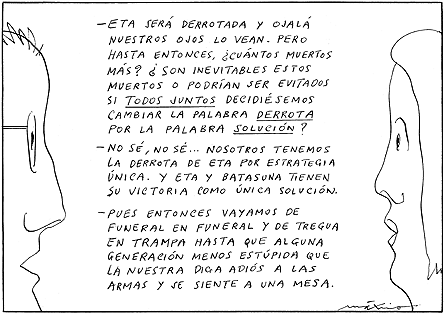 — ETA SERÁ DERROTADA Y OJALÁ
NUESTROS OJOS LO VEAN. PERO
HASTA ENTONCES, ¿CUÁNTOS MUERTOS
MÁS? ¿SON INEVITABLES ESTOS
MUERTOS O PODRÍAN SER EVITADOS
SI TODOS JUNTOS DECIDIÉSEMOS
CAMBIAR LA PALABRA DERROTA
POR LA PALABRA SOLUCIÓN?
— NO SÉ, NO SÉ... NOSOTROS TENEMOS
LA DERROTA DE ETA POR ESTRATEGIA
ÚNICA. Y ETA Y BATASUNA TIENEN
SU VICTORIA COMO ÚNICA SOLUCIÓN.
— PUES ENTONCES VAYAMOS DE
FUNERAL EN FUNERAL Y DE TREGUA
EN TRAMPA HASTA QUE ALGUNA
GENERACIÓN MENOS ESTÚPIDA QUE
LA NUESTRA DIGA ADIÓS A LAS
ARMAS Y SE SIENTE A UNA MESA.
máximo